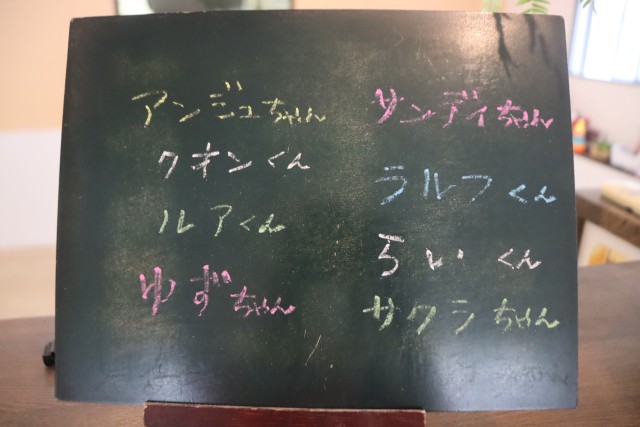 アンジュちゃん
クオンくん
ルアくん
ゆずちゃん
サンディちゃん
ラルフくん
らいくん
サクラちゃん